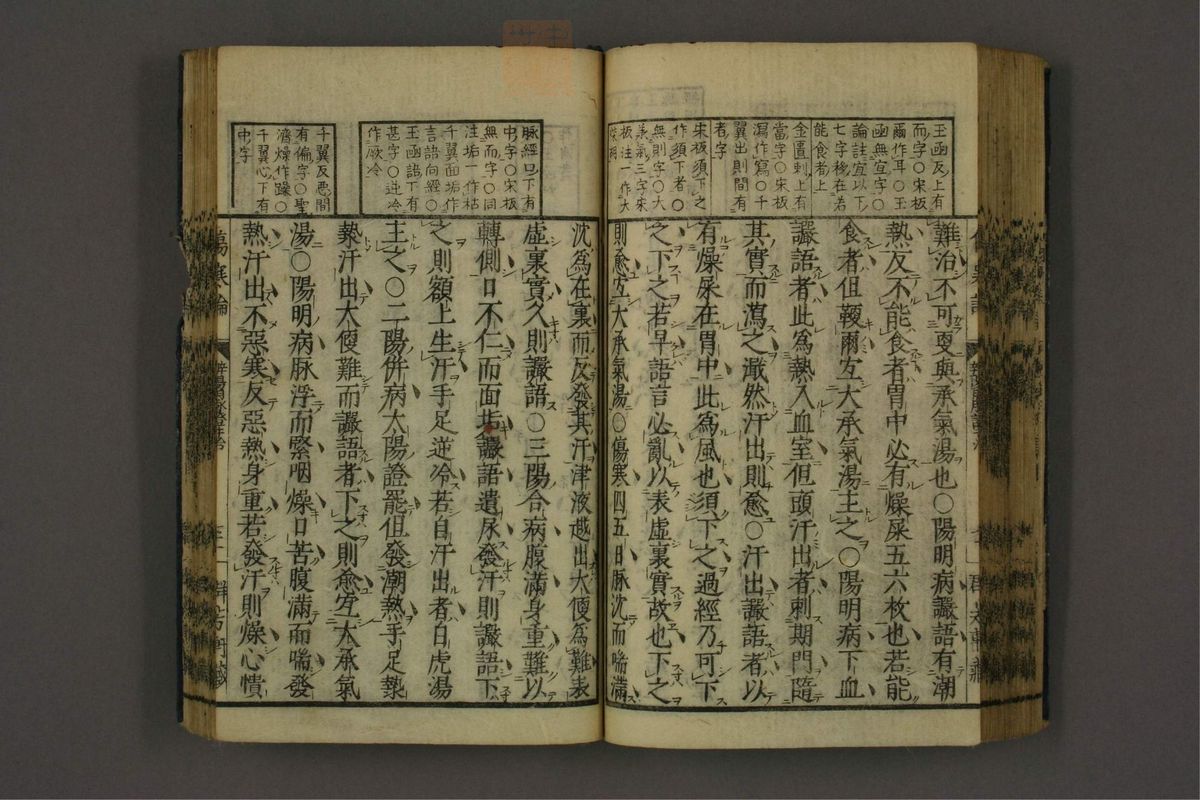 玉函反上有
而字○宋板
爾作耳○玉
函無宜字○
論註宜以下
七字移在若
能食者上
金匱刺上有
當字○宋板
瀉作寫○千
翼出則間有
者字
宋板須下之
作須下者○
無則字○大
承氣三字宋
板注一作大
柴胡
難治不可更與承氣湯也○陽明病讝語有潮
熱反不能食者胃中必有燥屎五六枚也若能
食者但鞕爾宜大承氣湯主之○陽明病下血
讝語者此爲熱入血室但頭汗出者刺期門隨
其實而瀉之濈然汗出則愈○汗出讝語者以
有燥屎在胃中此爲風也須下之過經乃可下
之下之若早語言必亂以表虛裏實故也下之
則愈宜大承氣湯○傷寒四五日脉沈而喘滿
脉經口下有
中字○宋板
無而字○同
注垢一作枯
千翼面垢作
言語向經○
玉函讝下有
甚字○逆冷
作厥冷
千翼反惡間
有偏字○聖
濟燥作躁○
千翼心下有
中字
沈爲在裏而反發其汗津液越出大便爲難表
虛裏實久則讝語○三陽合病腹滿身重難以
轉側口不仁而面垢讝語遺尿發汗則讝語下
之則額上生汗手足逆冷若自汗出者白虎湯
主之○二陽併病太陽證罷但發潮熱手足漐
漐汗出大便難而讝語者下之則愈宜大承氣
湯○陽明病脉浮而緊咽燥口苦腹滿而喘發
熱汗出不惡寒反惡熱身重若發汗則燥心憒
傷寒論